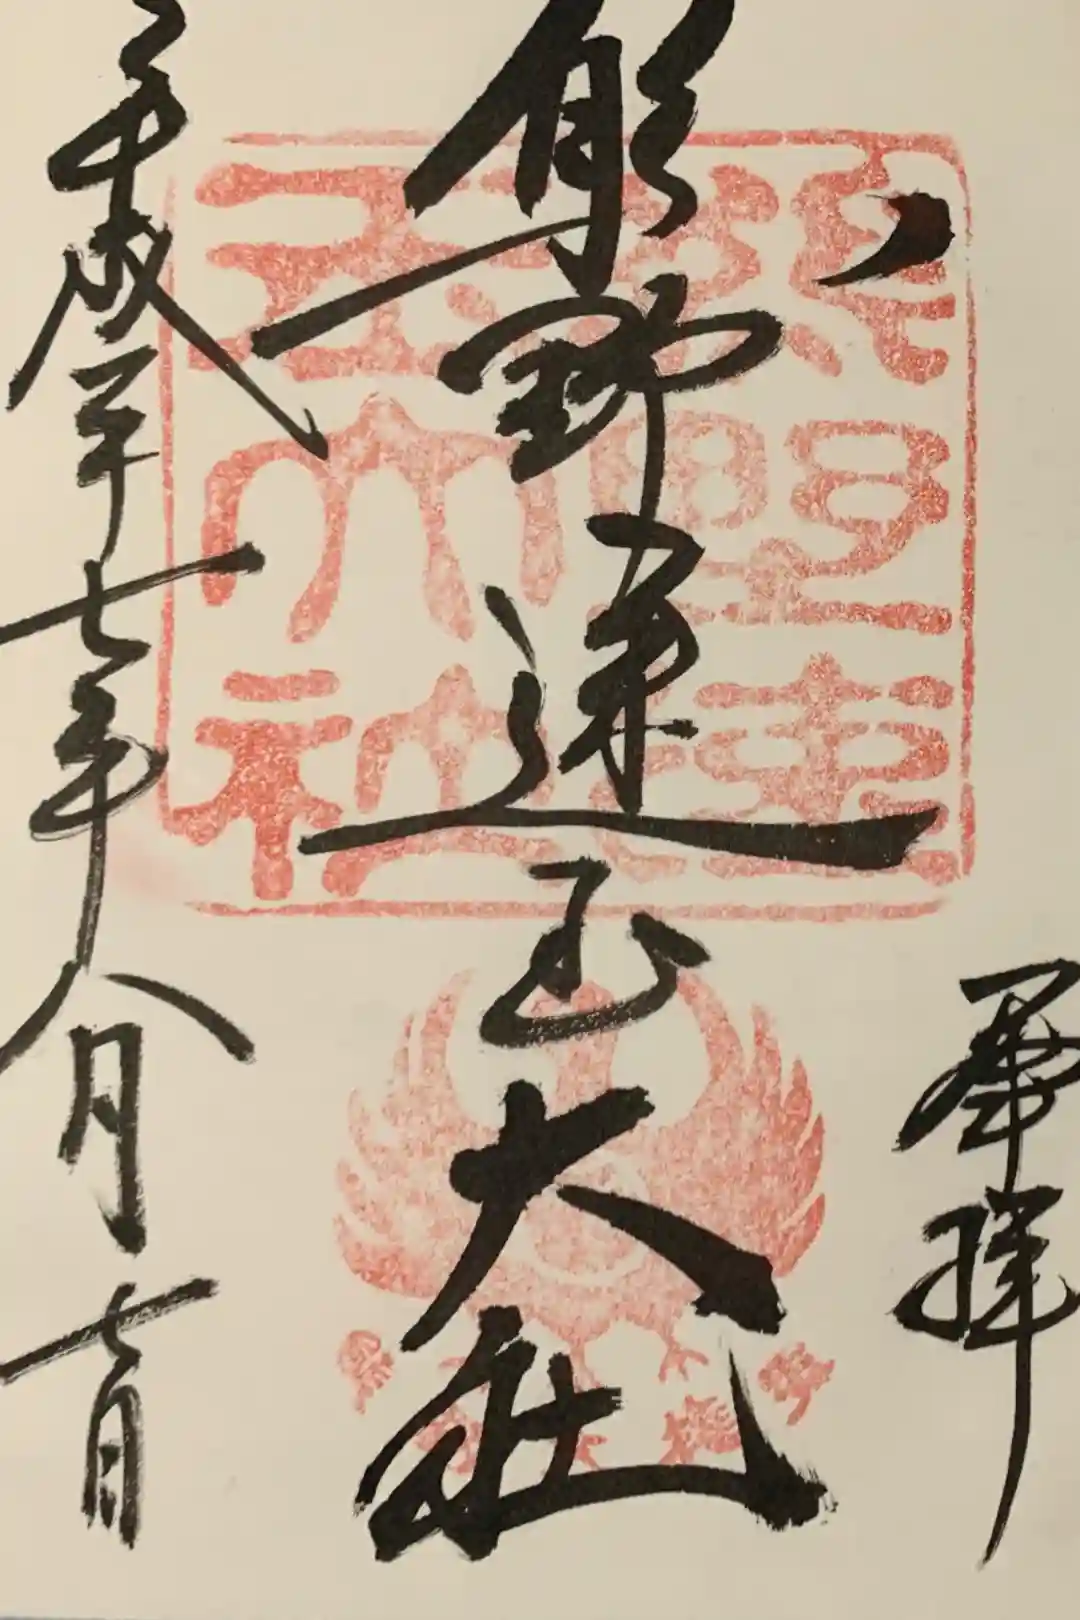 奉拝
熊野速玉大社
平成二十七年八月七日
熊野速
玉大社